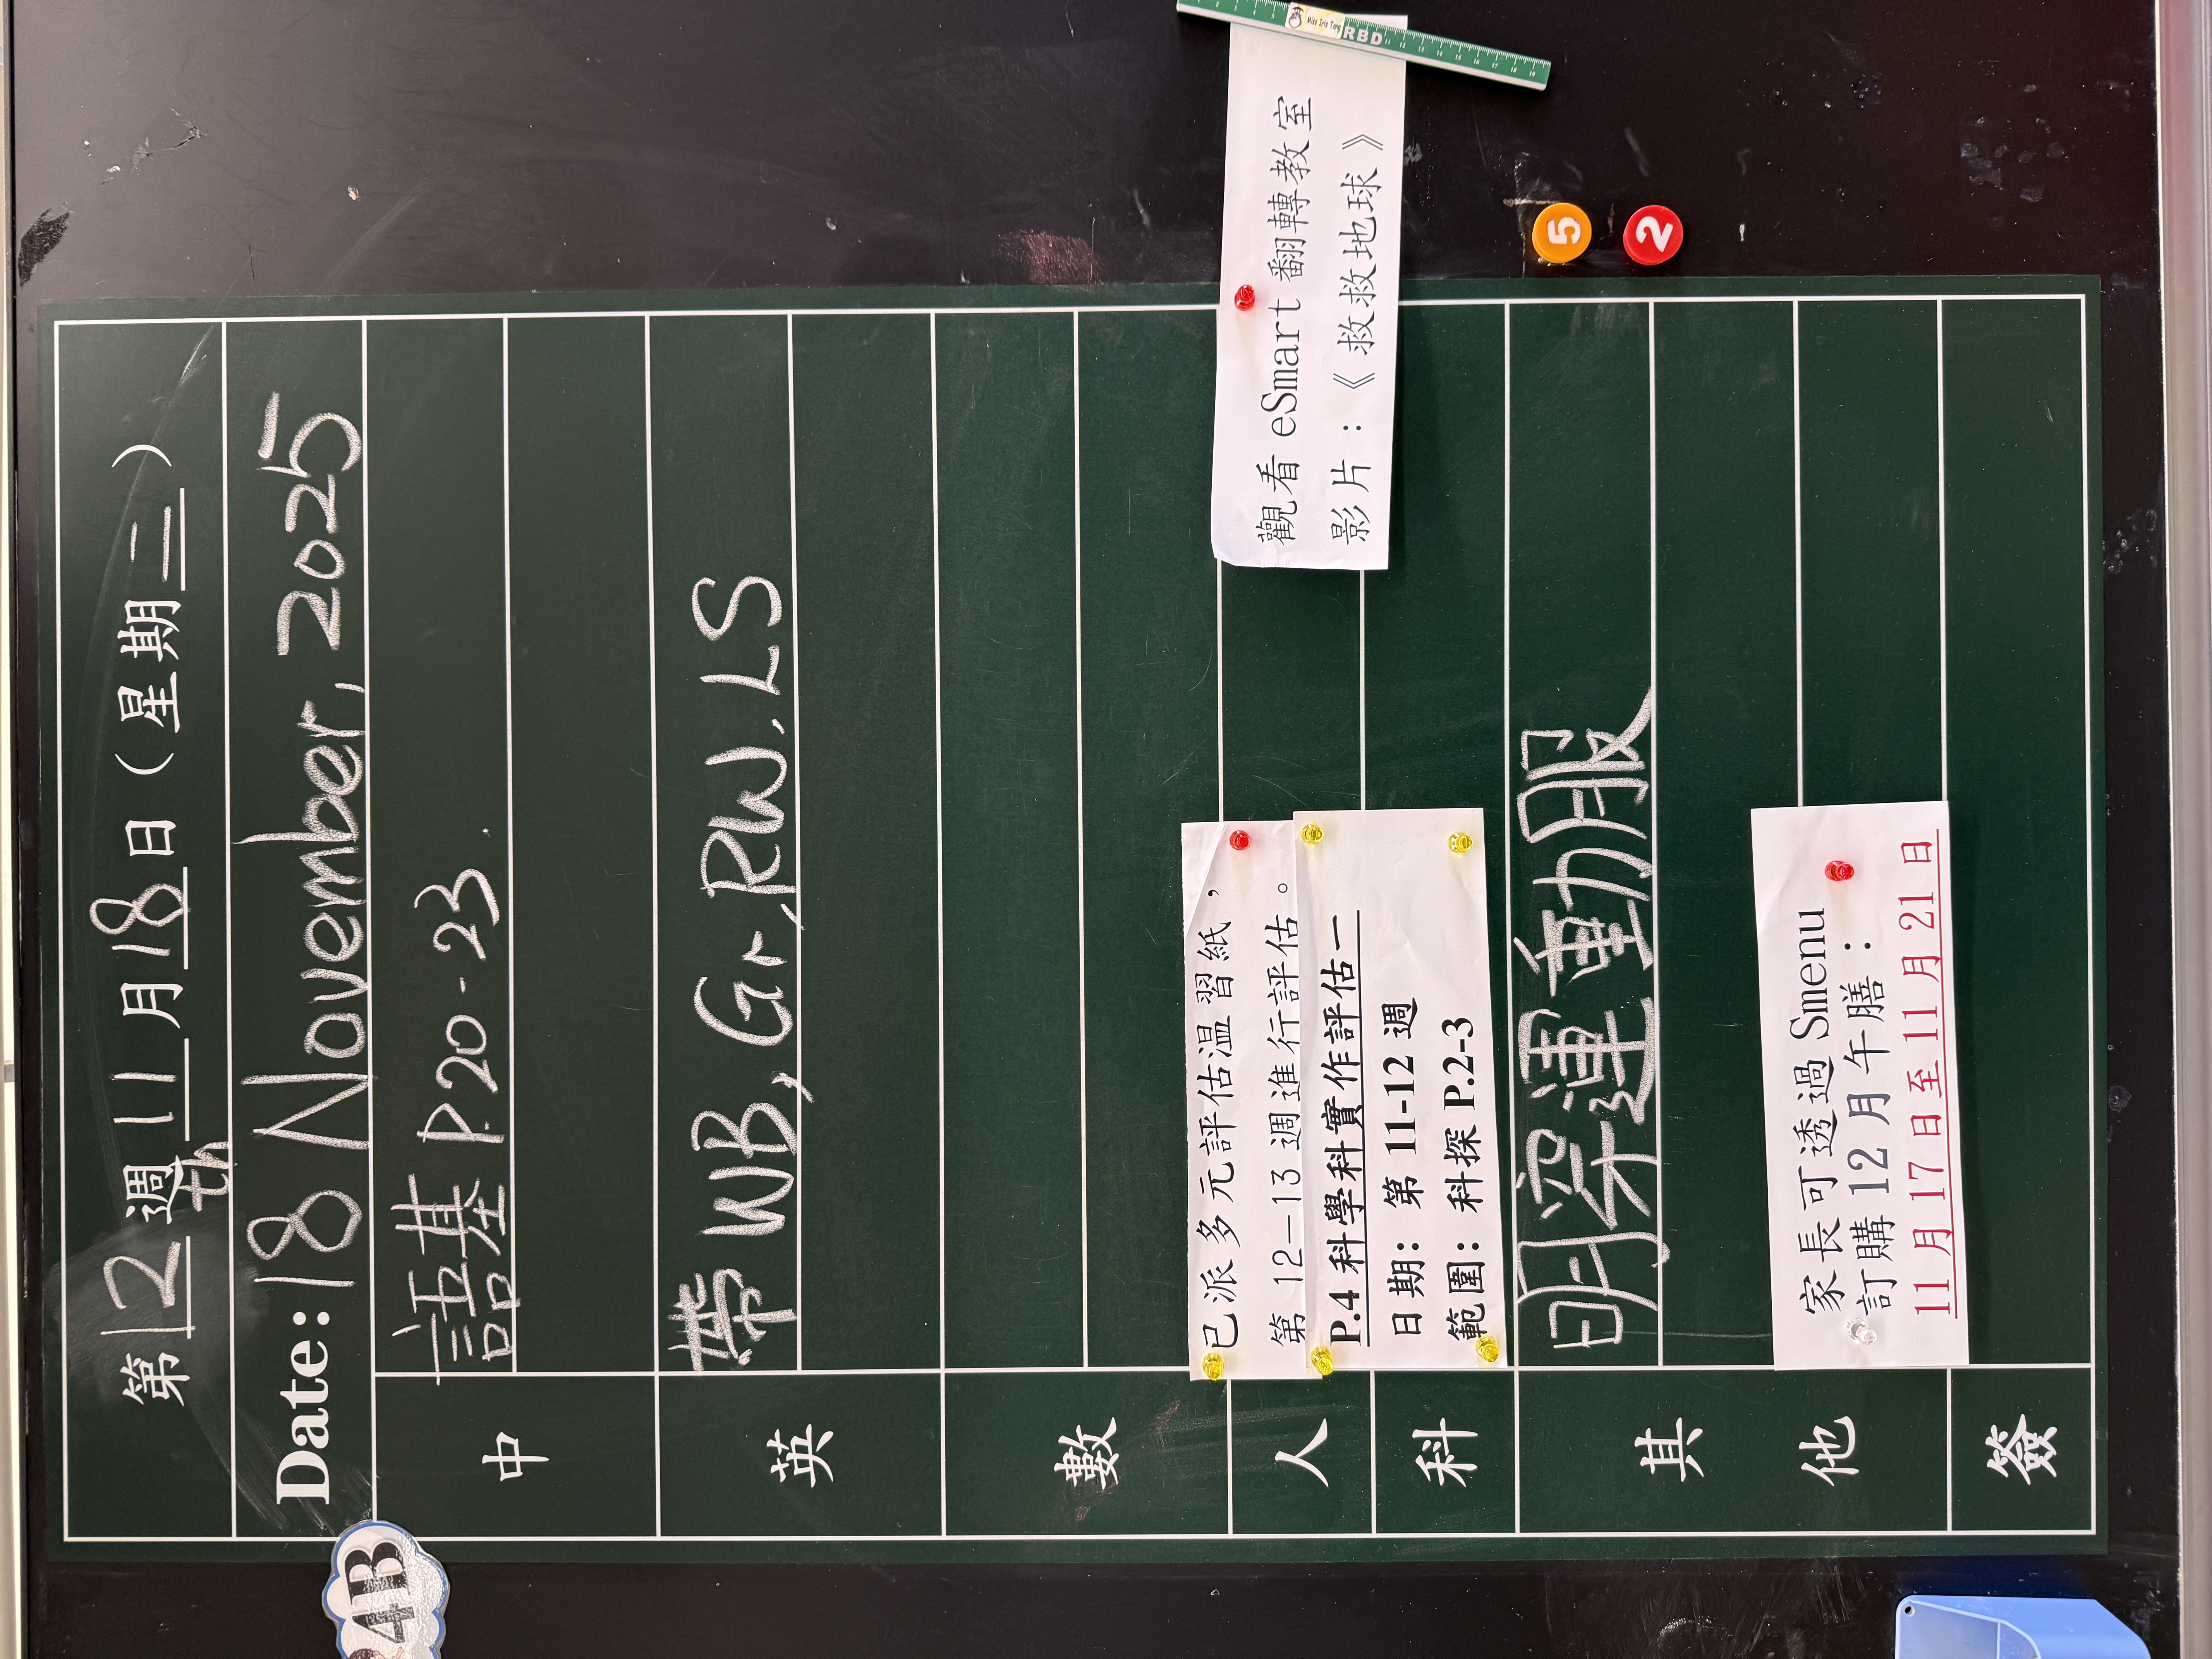 第12週 11月18日（星期二）
Date: 18th November, 2025
4B
中
語基 P.20-23.
英
帶 WB, Gr, RW, LS
數
人
已派多元評估溫習紙，
第 12-13 週進行評估。
觀看 eSmart 翻轉教室
影片：《救救地球》
科
P.4 科學科實作評估一
日期： 第 11-12 週
範圍： 科探 P.2-3
其他
明穿運動服
家長可透過 Smenu
訂購 12 月午膳：
11 月 17 日至 11 月 21 日
簽
Miss Iris Tang
RBD
5
2